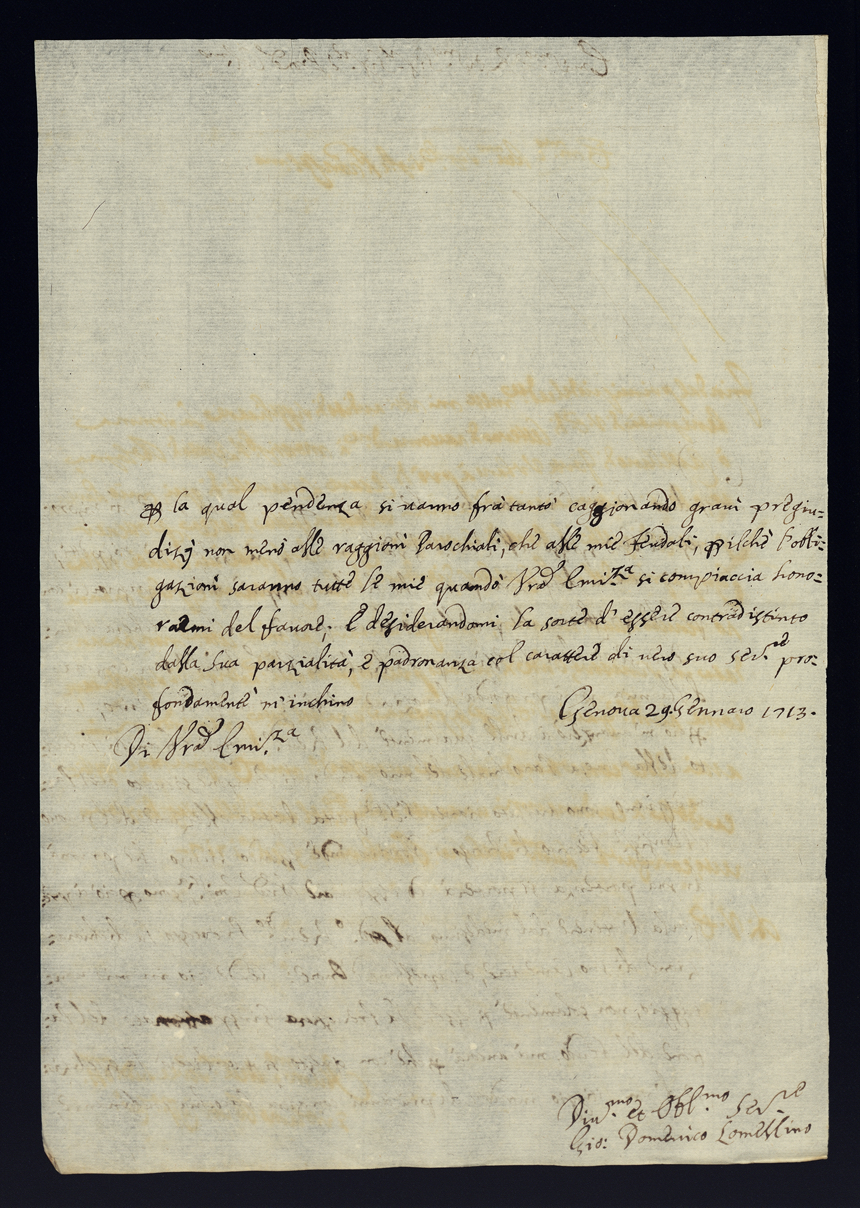 la qual pendenza si vanno frà tanto caggionando gravi pregiu=
dizij non meno alle raggioni Parochiali, che alle mie feudali, ilchè l'obli=
gazioni saranno tutte le mie quando Vrã Emi.za si compiaccia hono=
rarmi del favore; E desiderandomi la sorte d'essere contradistinto
dalla Sua parzialità, e padronanza col carattere di vero suo ser.re pro=
fondamente m'inchino
Genova 29. Gennaro 1713.
Di Vrã Emi.za
Div.mo et Obl.mo Ser.re
Gio: Domenico Lomellino